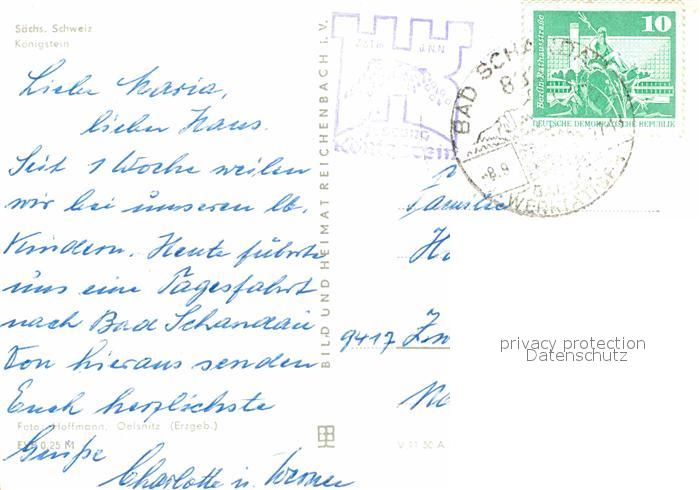 Sächs. Schweiz
Königstein
Liebe Maria,
lieber Hans.
Seit 1 Woche weilen
wir bei unseren lb.
Kindern. Heute führte
uns eine Tagesfahrt
nach Bad Schandau
Von hieraus senden
Euch herzlichste
Grüße
Charlotte u. Werner
Foto: Hoffmann, Oelsnitz (Erzgeb.)
EVP 0,25 M
BILD UND HEIMAT REICHENBACH i. V.
V 11 50 A
Königstein
BAD SCHANDAU
-8.9
WERKTÄTIGEN
10
Berlin-Rathausstraße
DEUTSCHE DEMOKRATISCHE REPUBLIK
Familie
9417
privacy protection
Datenschutz